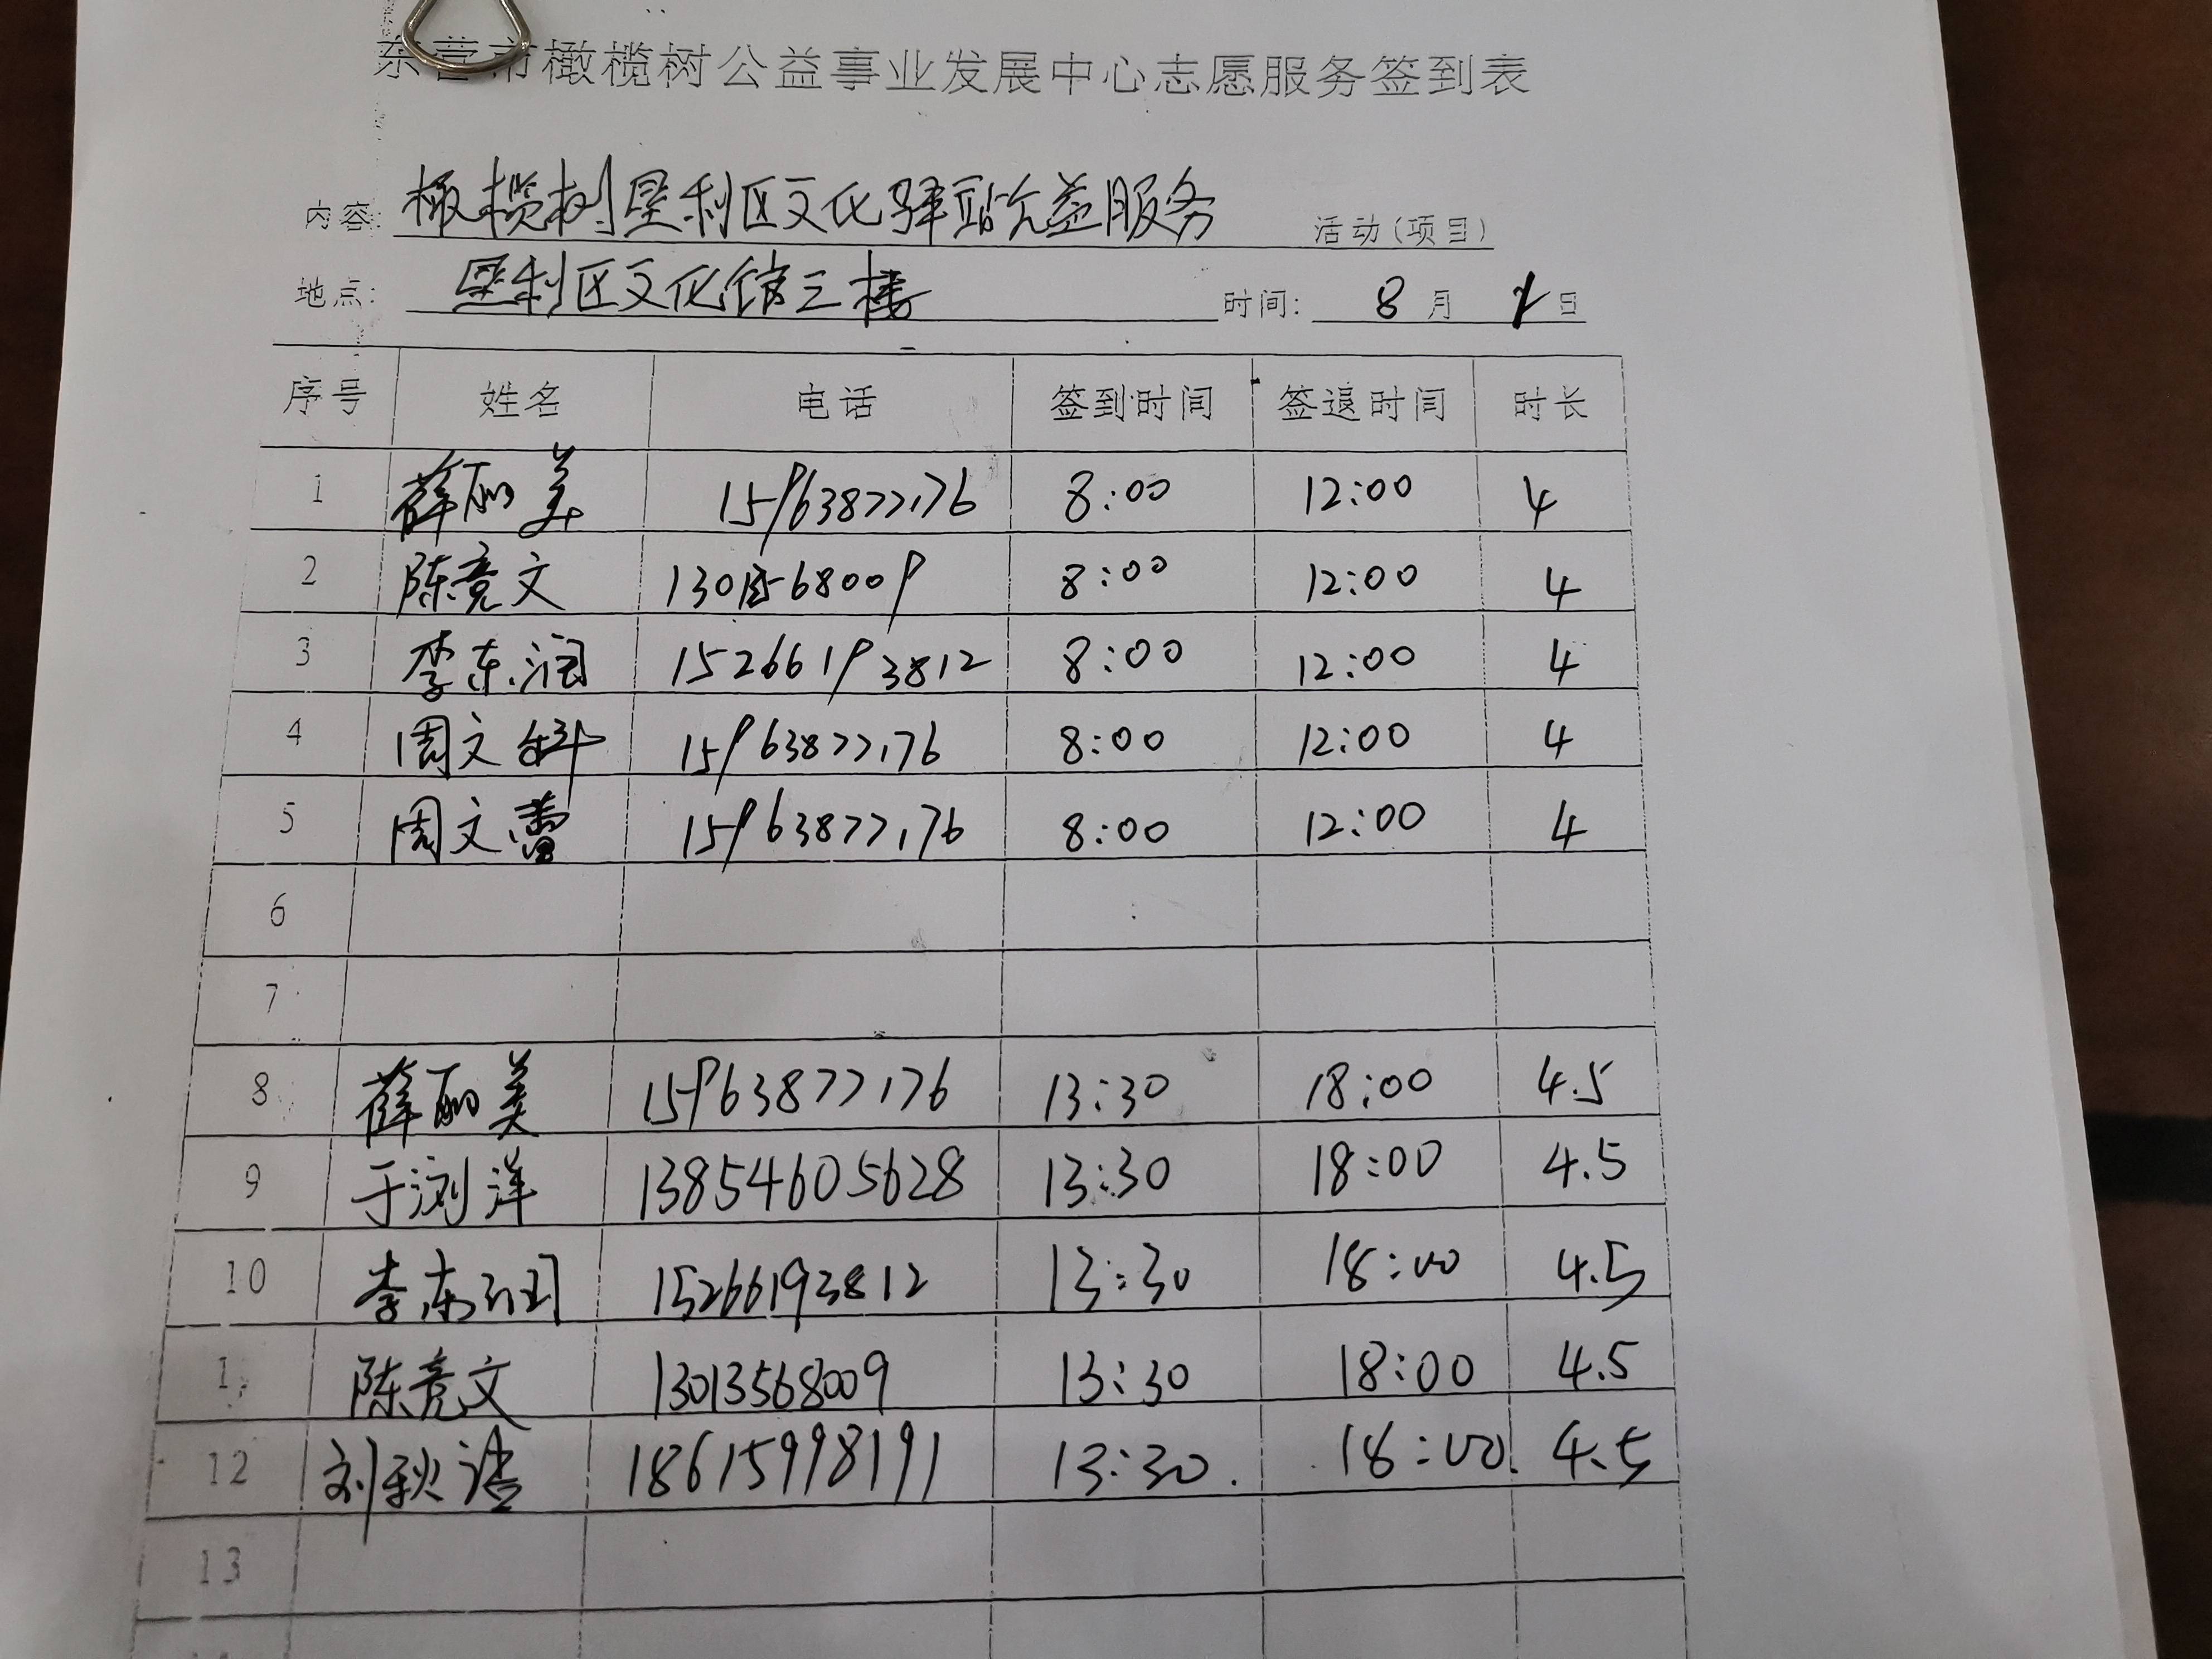 东营市橄榄树公益事业发展中心志愿服务签到表
内容: 橄榄树垦利区文化驿站公益服务 活动(项目)
地点: 垦利区文化馆三楼 时间: 8 月 1 日
序号 姓名 电话 签到时间 签退时间 时长
1 薛丽美 15963877176 8:00 12:00 4
2 陈竟文 8:00 12:00 4
3 李东润 15266193812 8:00 12:00 4
4 周文 15963877176 8:00 12:00 4
5 周文蕾 15963877176 8:00 12:00 4
6
7
8 薛丽美 15963877176 13:30 18:00 4.5
9 于浏洋 13854605628 13:30 18:00 4.5
10 李东润 15266193812 13:30 18:00 4.5
1 陈竟文 13013568009 13:30 18:00 4.5
12 刘秋 18615998191 13:30. 18:00 4.5
13